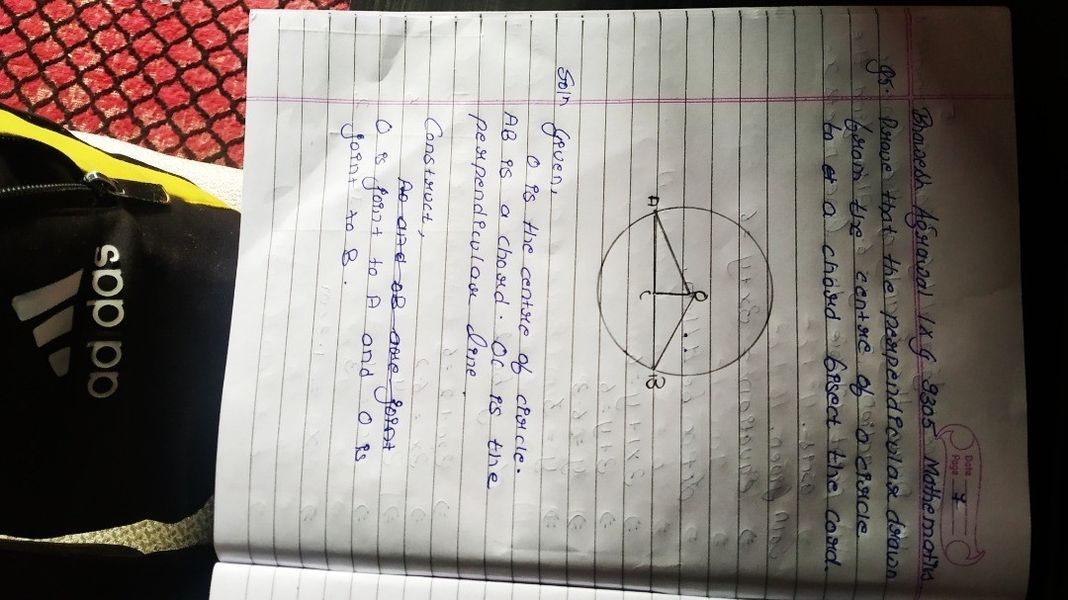 Date
Page 7
Bhawesh Agrawal IX G 9305 Mathematics
Prove that the perpendicular drawn
from the centre of a circle
to a chord bisect the cord.
A
O
C
B
Soln Given,
O is the centre of circle.
AB is a chord. OC is the
perpendicular line
Construct,
AO and OB are joint
O is joint to A and O is
joint to B.
adidas